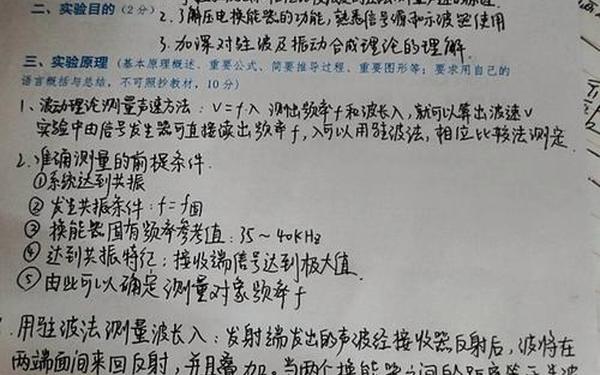 二、实验目的（2分）
2.了解压电换能器的功能，熟悉信号源和示波器使用
3.加深对驻波及振动合成理论的理解.
三、实验原理（基本原理概述、重要公式、简要推导过程、重要图形等；要求用自己的
语言概括与总结，不可照抄教材，10分）
1、波动理论测量声速方法：v=f·λ 测出频率f和波长λ，就可以算出波速v
实验中由信号发生器可直接读出频率f，λ可以用驻波法，相位比较法测定.
2.准确测量的前提条件.
①系统达到共振
②发生共振条件：f=f固
③换能器固有频率参考值：35~40kHz
④达到共振特征：接收端信号达到极大值.
⑤由此可以确定测量对象频率f
.用驻波法测量波长λ：发射端发出的声波经接收器反射后，波将在
两端面间来回反射，并且叠加。当两个换能器之间的距离等于半波